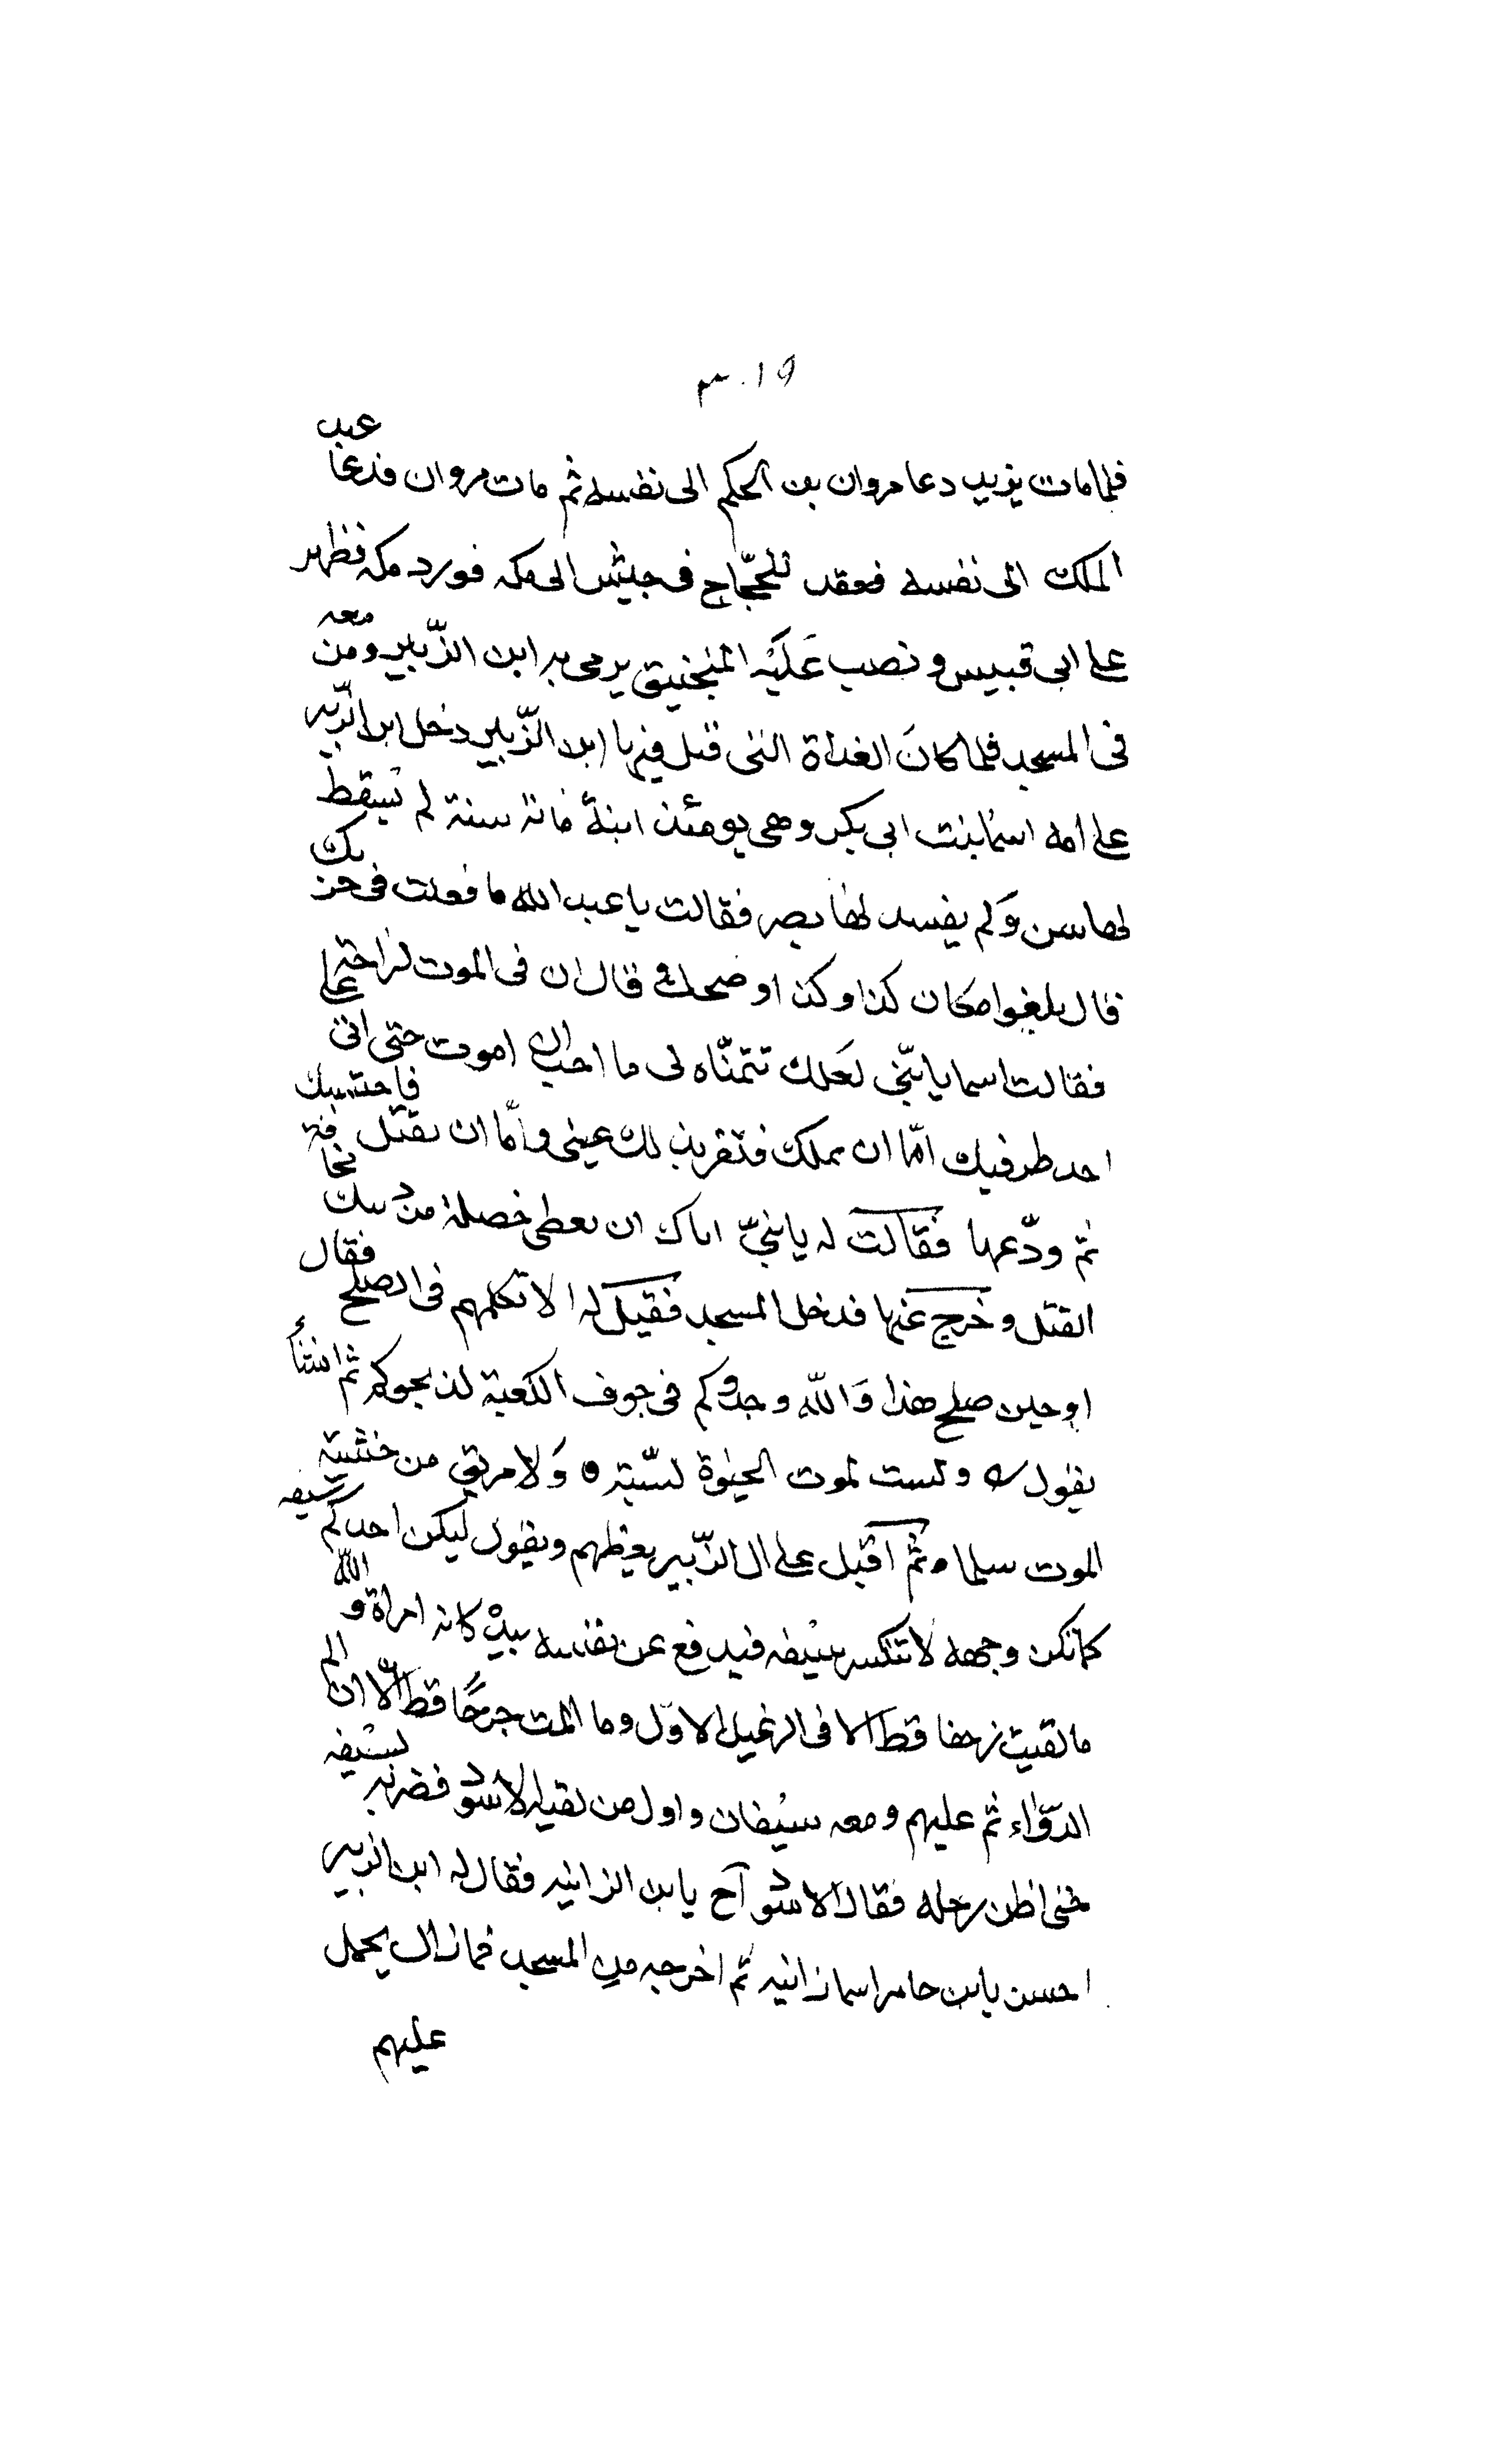 ٣٠١٩
فلما مات يزيد دعا مروان بن الحكم الى نفسه ثم مات مروان فدعا عبد
الملك الى نفسه فعقد للحجّاج فى جيش الى مكه فورد مكه فظهر
على ابى قبيس ونصب عَلَيْه المنجنيق يرمى به ابن الزّبير ومن معه
فى المسجد فلما كانَ الغداة التى قتل فيها ابن الزّبير دخل ابن الزّبير
على امه اسما بنت ابى بكر وهى يومئذ ابنة مائة سنة لم يسقط
لها سن وَلم يفسد لها بصر فقالت يا عبد الله ما فعلت فى حربك
قال بلغوا مكان كذا وكذا وضحك قال ان فى الموت لراحة
فقالت اسما يا بنّى لعَلك تتمنّاه لى ما احب ان اموت حتى اتى على
احد طرفيك امّا ان تملك فتقر بذلك عينى وامّا ان تقتل فاحتسبك
ثم ودّعها فقالت له يا بنىّ اياك ان تعطى خصلة من دينك مخافة
القتل وخرج عنها فدخل المسجد فقيل له الا تكلمهم فى الصلح فقال
اوحين صلح هذا وَالله وجدوكم فى جوف الكعبة لذبحوكم ثم انشأ
يقول ولست لموت الحيٰوة لسّبة وَلا مرتق من خشية
الموت سلما ثم اقبل على ال الزّبير يعظهم ويقول ليكن احدكم سيفه
كما تكن وجهه لا تنكسر سيفه فيدفع عن نفسه بيده كانه امراة والله
ما لقيت زحفا قط الا فى الرعيل الاوّل وما المت جرحًا قط الّا ان الم
الدّوٰاء ثم عليهم ومعه سيفان واول من لقيه الاسود فضربه بسيفه
حتى اطن رجله فقال الاسود آح يا بن الزانيه فقال له ابن الزبير
احسن يا بن حام اسما زانيه ثم اخرجه من المسجد فما زال يحمل
عليهم